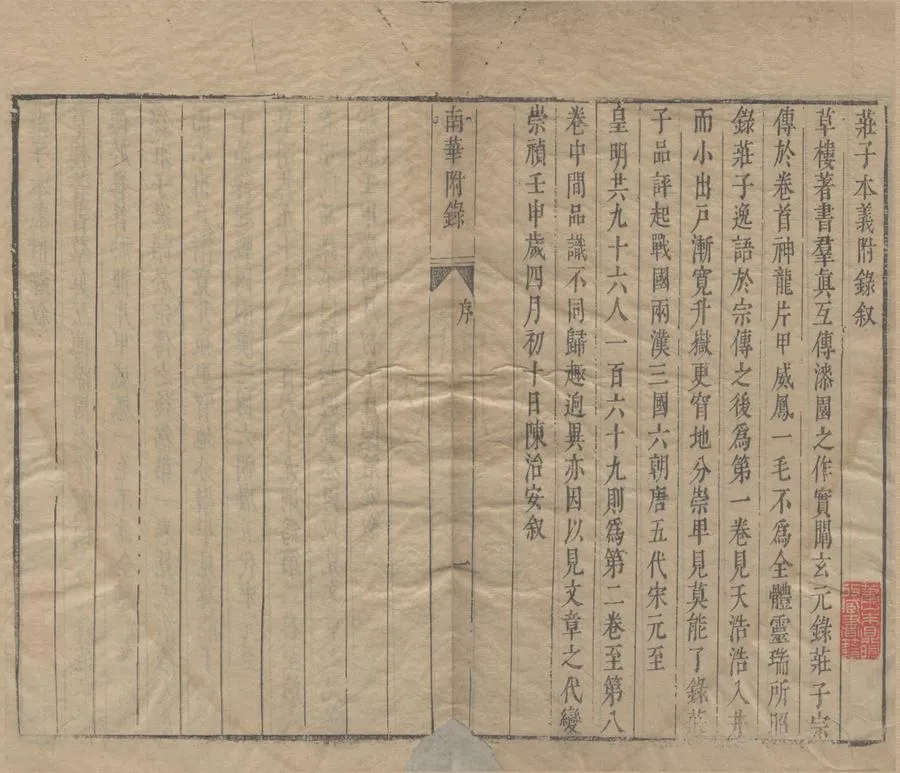 莊子本義附錄叙
草樓著書羣真互傳漆園之作實闡玄元錄莊子宗
傳於卷首神龍片甲威鳳一毛不爲全體靈瑞所昭
錄莊子逸語於宗傳之後爲第一卷見天浩浩入井
而小出戶漸寬升嶽更窅地分崇卑見莫能了錄莊
子品評起戰國兩漢三國六朝唐五代宋元至
皇明共九十六人一百六十九則爲第二卷至第八
卷中間品識不同歸趣逈異亦因以見文章之代變
崇禎壬申歲四月初十日陳治安叙
南華附錄 序 一